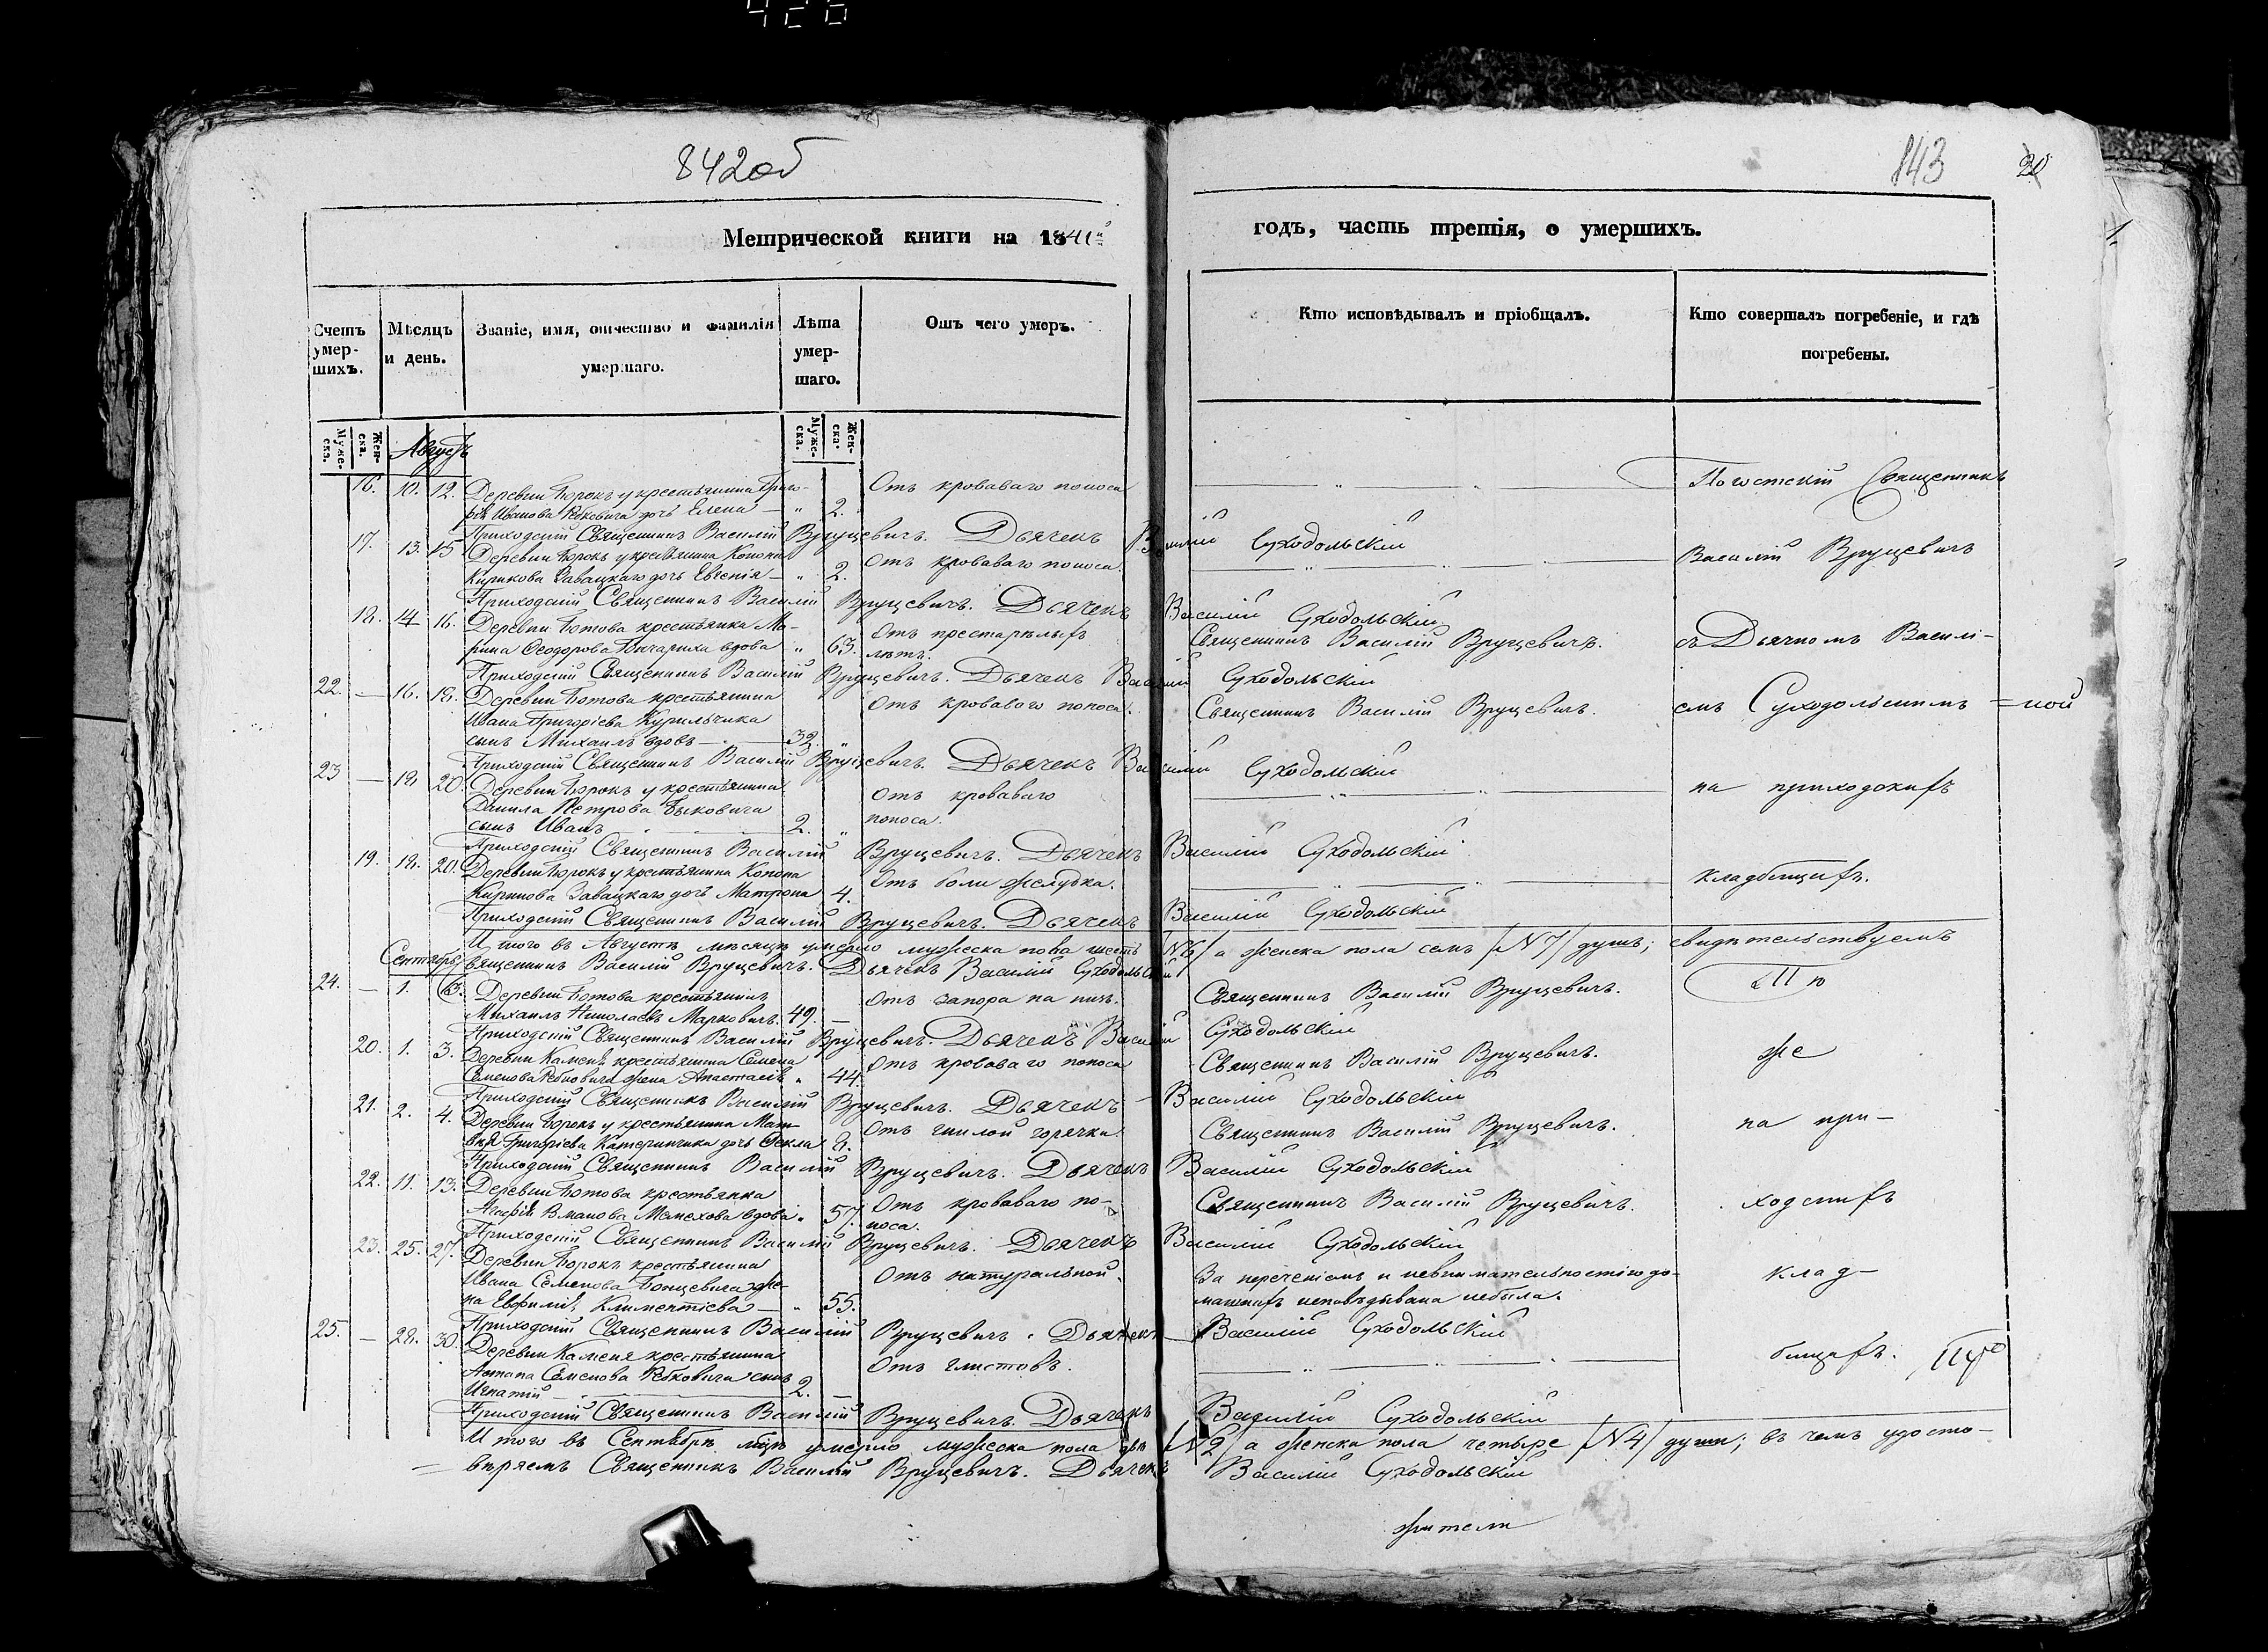 426
842об
843
20
Метрической книги на 1841й
годъ, часть третія, о умершихъ.
Счетъ умер-шихъ.
Мѣсяцъ и день.
Званіе, имя, отчество и фамилія умершаго.
Лѣта умер-шаго.
Отъ чего умеръ.
Кто исповѣдывалъ и пріобщалъ.
Кто совершалъ погребеніе, и гдѣ погребены.
Муже-ска.
Жен-ска.
Муже-ска.
Жен-ска.
Августъ
16. 10. 12. Деревни Борокъ у крестьянина Григо-
рія Иванова Рабковича дочь Елена — „ 2.
Отъ кроваваго поноса
Погостскій Священникъ
Приходскій Священникъ Василій Вруцевичъ. Дьячекъ Василій Суходольскій
17. 13. 15 Деревни Борокъ у крестьянина Конона
Кирикова Завацкаго дочь Евгенія — „ 2.
Отъ кроваваго поноса.
Василій Вруцевичъ
Приходскій Священникъ Василій Вруцевичъ. Дьячекъ Василій Суходольскій
18. 14 16. Деревни Ботова крестьянка Ма-
рина Ѳеодорова вдова „ 63.
Отъ престарѣлыхъ
лѣтъ.
Священникъ Василій Вруцевичъ.
съ Дьячкомъ Василі-
Приходскій Священникъ Василій Вруцевичъ. Дьячекъ Василій Суходольскій
22. — 16. 18. Деревни Ботова крестьянина
Ивана Григорієва Курильчика
сынъ Михаилъ вдовъ — 32. „
Отъ кроваваго поноса.
Священникъ Василій Вруцевичъ.
емъ Суходольскимъ =ной
Приходскій Священникъ Василій Вруцевичъ. Дьячекъ Василій Суходольскій
23 — 18. 20. Деревни Борокъ у крестьянина
Данила Петрова Быковича
сынъ Иванъ 2. „
Отъ кроваваго
поноса.
на приходскихъ
Приходскій Священникъ Василій Вруцевичъ. Дьячекъ Василій Суходольскій
19. 18. 20. Деревни Борокъ у крестьянина Конона
Кирикова Завацкаго дочь Матрона 4.
Отъ боли желудка.
кладбищахъ.
Приходскій Священникъ Василій Вруцевичъ. Дьячекъ Василій Суходольскій
И того въ Августѣ мѣсяцѣ умерло мужеска пола шесть /N6/ а женска пола семь /N7/ душъ; свидѣтельствуемъ
Священникъ Василій Вруцевичъ. Дьячекъ Василій Суходольскій
Сентябрь
24. — 1. 3. Деревни Ботова крестьянинъ
Михаилъ Николаевъ Марковичъ. 49. —
Отъ запора на низъ.
Священникъ Василій Вруцевичъ.
Приходскій Священникъ Василій Вруцевичъ. Дьячекъ Василій Суходольскій
20. 1. 3. Деревни Камень крестьянина Семена
Семенова Рабковича жена Анастасія „ 44.
Отъ кроваваго поноса
Священникъ Василій Вруцевичъ.
же
Приходскій Священникъ Василій Вруцевичъ. Дьячекъ — Василій Суходольскій
21. 2. 4. Деревни Борокъ у крестьянина Мат-
вѣя Григорієва Катеринчика дочь Ѳекла 8.
Отъ гнилой горячки.
Священникъ Василій Вруцевичъ.
на при-
Приходскій Священникъ Василій Вруцевичъ. Дьячекъ Василій Суходольскій
22. 11. 13. Деревни Ботова крестьянка
Агафія вдова. 57.
Отъ кроваваго по-
носа.
Священникъ Василій Вруцевичъ.
ходскихъ
Приходскій Священникъ Василій Вруцевичъ. Дьячекъ Василій Суходольскій
23. 25. 27. Деревни Борокъ крестьянина
Ивана Семенова же-
на Евфимія Климентієва — „ 55.
Отъ натуральной.
За нерченіемъ и невнимательностію до-
машнихъ исповѣдывана небыла.
клад-
Приходскій Священникъ Василій Вруцевичъ. Дьячекъ — Василій Суходольскій
25. — 28. 30. Деревни Каменя крестьянина
Антона Семенова Рабковича сынъ
Игнатій 2. —
Отъ глистовъ.
бищахъ.
Приходскій Священникъ Василій Вруцевичъ. Дьячекъ Василій Суходольскій
И того въ Сентябрѣ мцѣ умерло мужеска пола двѣ /N2/ а женска пола четыре /N4/ души; въ чемъ удосто-
вѣряемъ Священникъ Василій Вруцевичъ. Дьячекъ Василій Суходольскій
жители